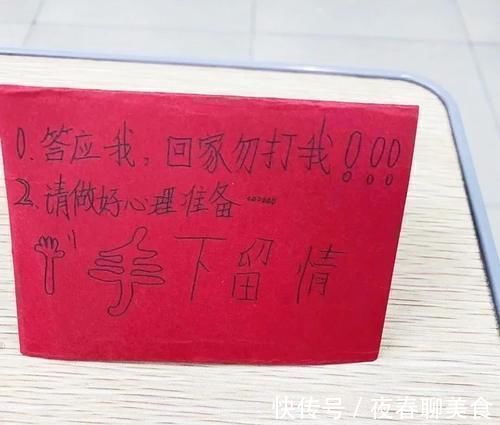 1.答应我，回家勿打我!!!
2.请做好心理准备……
手下留情
快传号/夜春聊美食